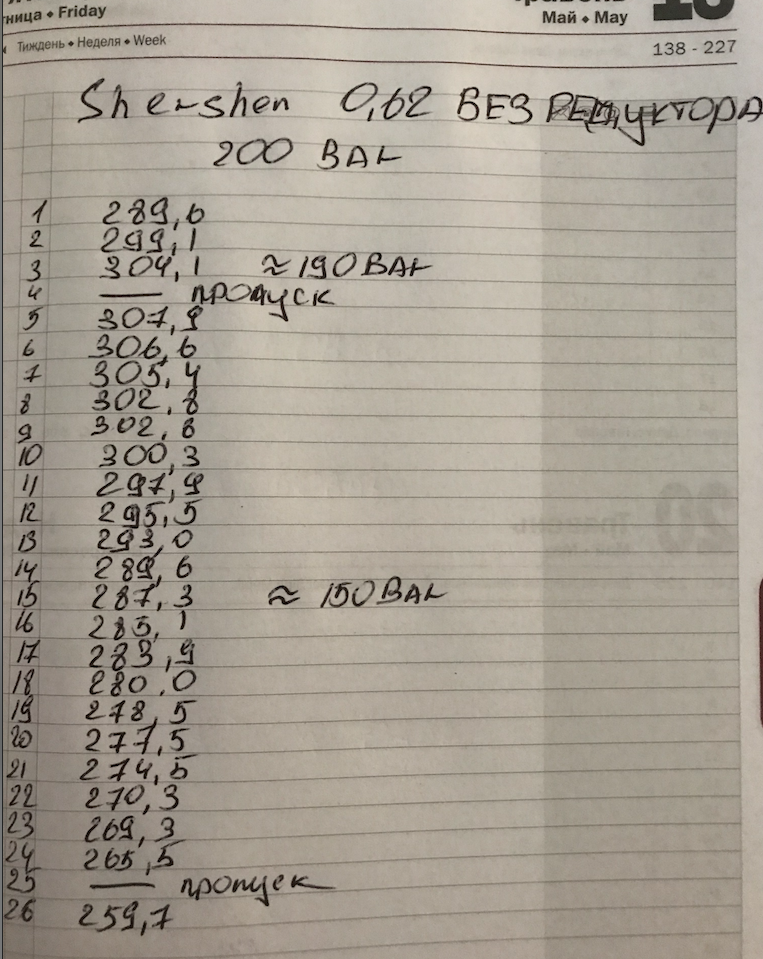 ница ◆ Friday
Май ◆ May
Тиждень ◆ Неделя ◆ Week
138 - 227
Shershen 0,62 БЕЗ РЕДУКТОРА
200 BAr
1 289,6
2 299,1
3 304,1 ≈190 BAr
4 — пропуск
5 307,9
6 306,6
7 305,4
8 302,8
9 302,8
10 300,3
11 297,9
12 295,5
13 293,0
14 289,6
15 287,3 ≈ 150 BAr
16 285,1
17 283,9
18 280,0
19 278,5
20 277,5
21 274,5
22 270,3
23 269,3
24 265,5
25 — пропуск
26 259,7